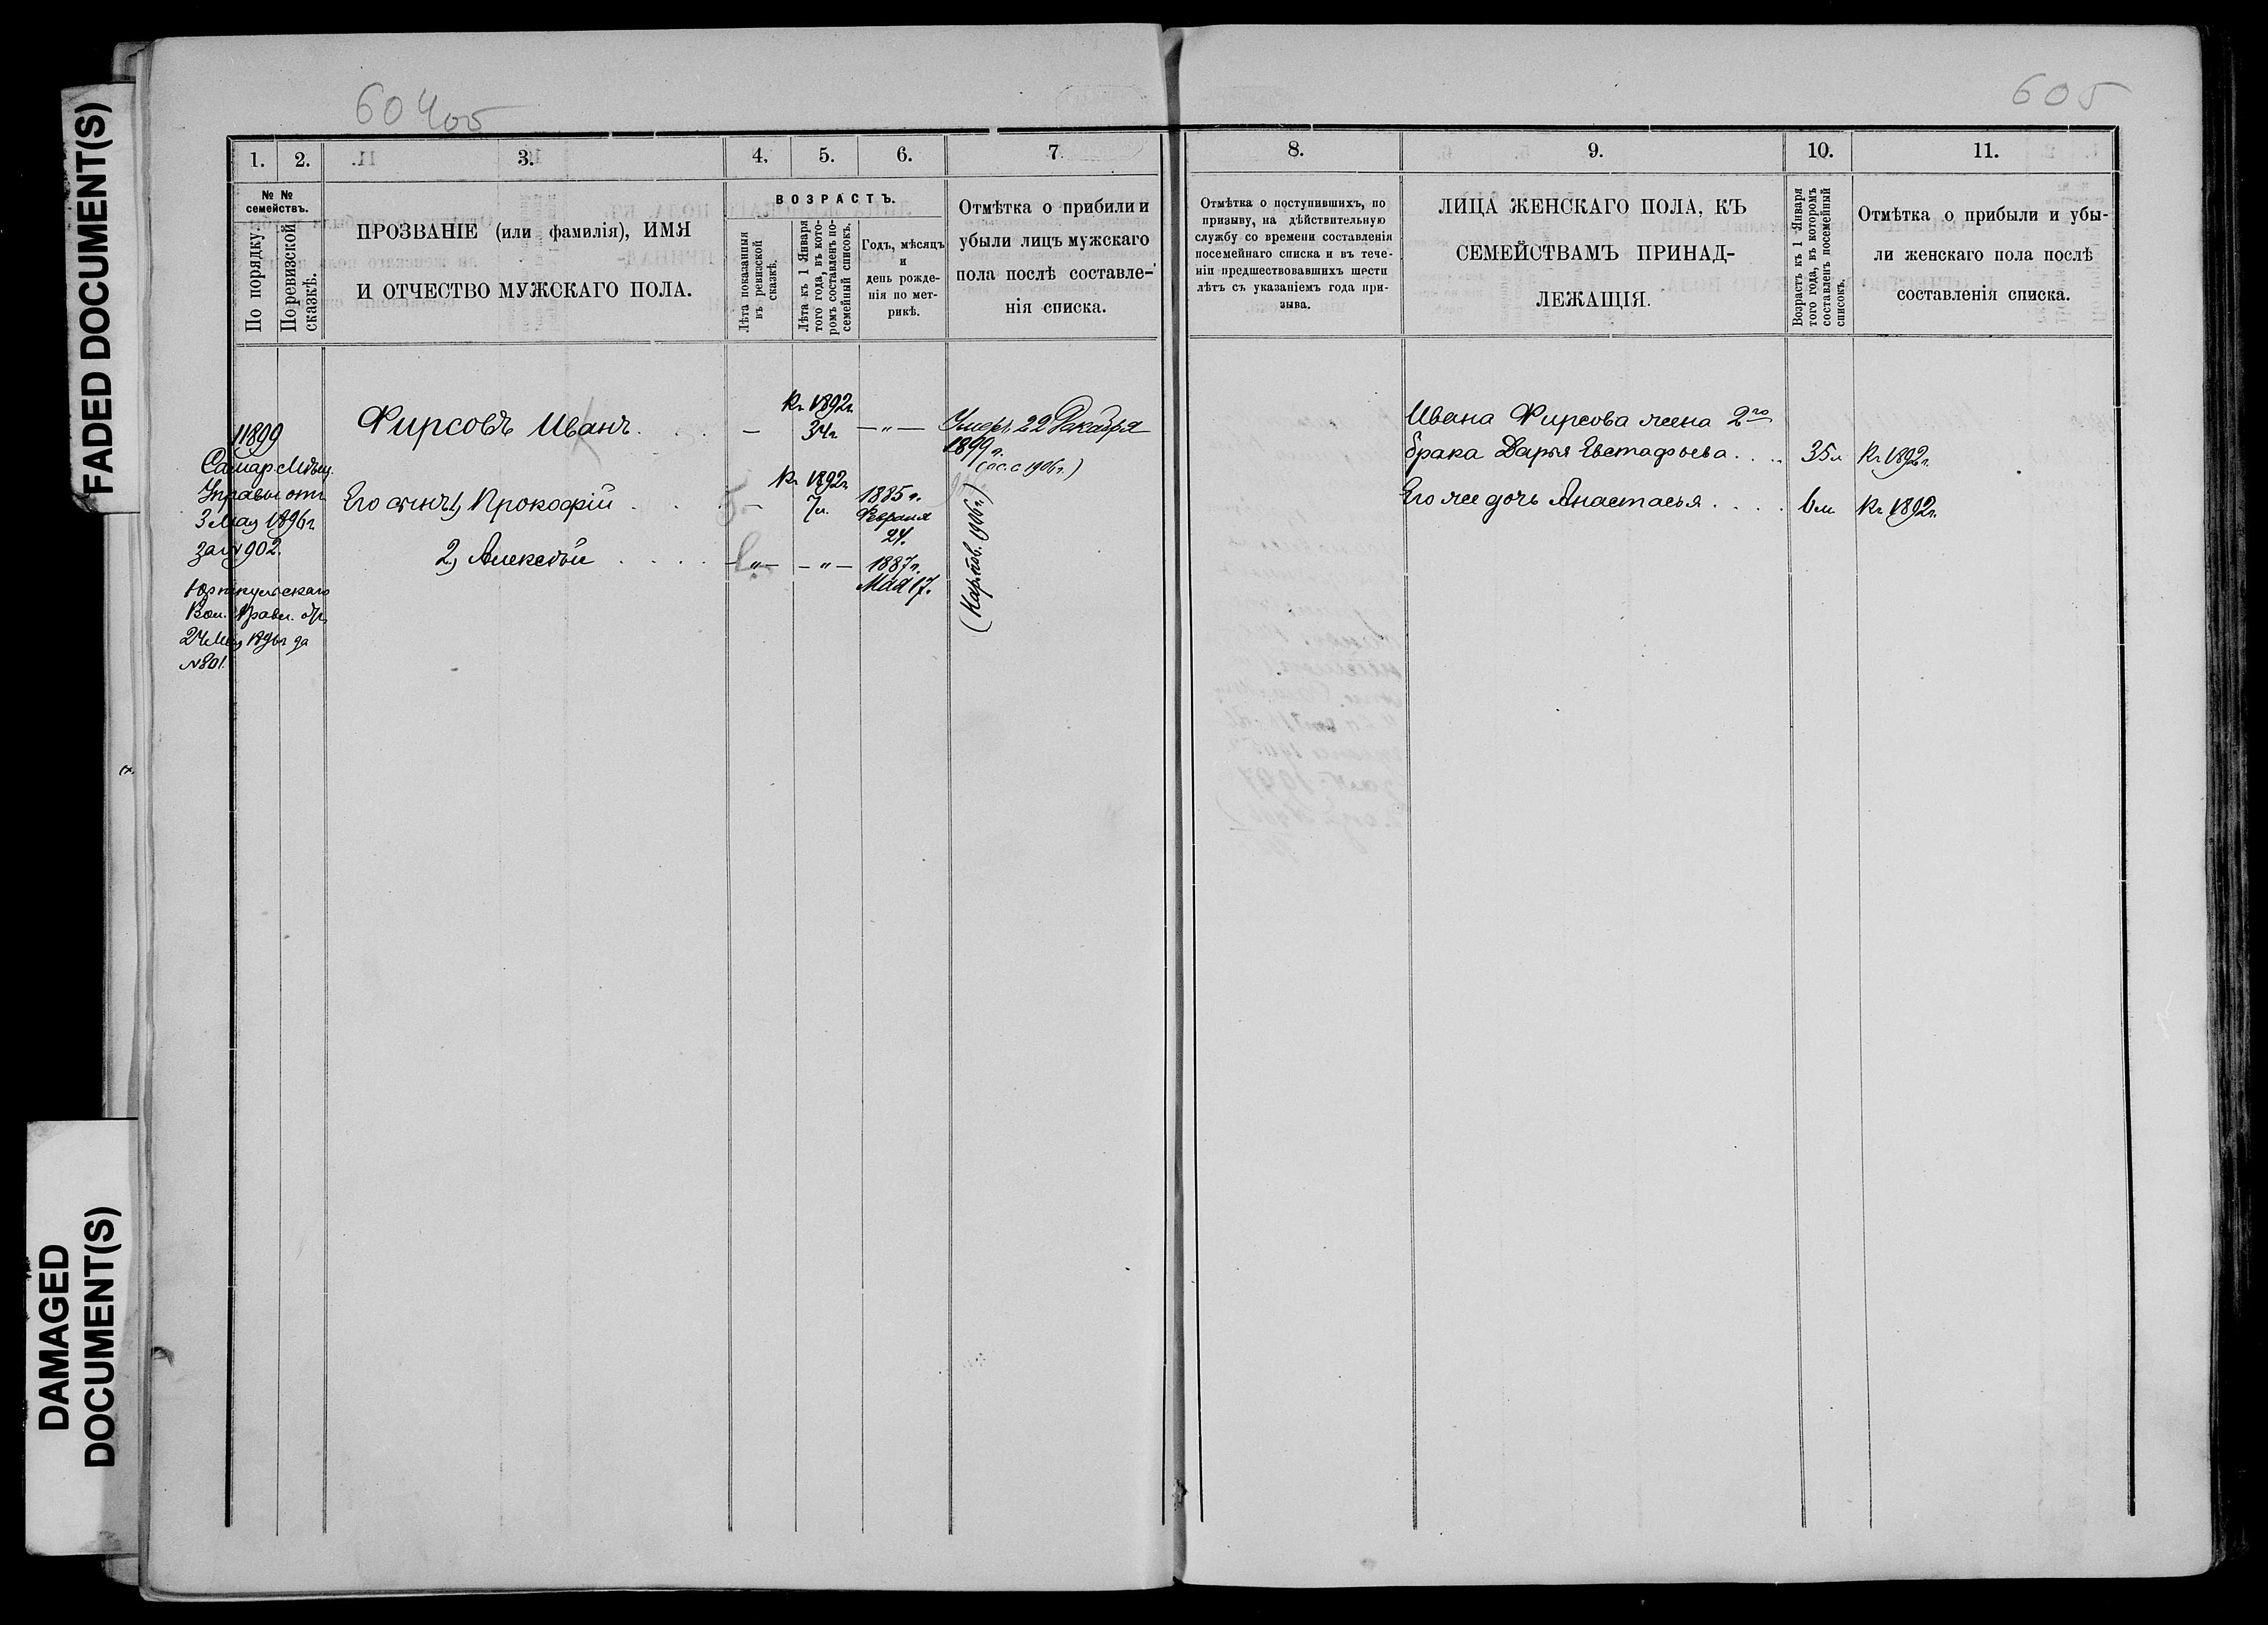 FADED DOCUMENT(S)
DAMAGED
DOCUMENT(S)
604об
1. 2. 3. 4. 5. 6. 7.
№ №
семействъ.
По порядку.
По ревизской
сказкѣ.
ПРОЗВАНІЕ (или фамилія), ИМЯ
И ОТЧЕСТВО МУЖСКАГО ПОЛА.
ВОЗРАСТЪ.
Лѣта показанныя
въ ревизской
сказкѣ.
Лѣта къ 1 Января
того года, въ кото-
ромъ составленъ по-
семейный списокъ.
Годъ, мѣсяцъ
и
день рожде-
нія по мет-
рикѣ.
Отмѣтка о прибыли и
убыли лицъ мужскаго
пола послѣ составле-
нія списка.
11899
Самар. Мѣщ.
Управы отъ
3 Мая 1896 г.
за № 902.
Вол. Правл. отъ
24 Мая 1896 г. за
№ 801.
Фирсовъ Иванъ. . . .
—
Къ 1892 г.
34 г.
— „ —
Умеръ 22 Декабря
1899 г.
(ос. с 1906 г.)
Его сынъ 1, Прокофій . . . .
—
Къ 1892 г.
7 л.
1885 г.
Февраля
24.
2, Алексѣй . . . .
— „ —
— „ —
1887 г.
Мая 17.
605
8. 9. 10. 11.
Отмѣтка о поступившихъ, по
призыву, на дѣйствительную
службу со времени составленія
посемейнаго списка и въ тече-
ніи предшествовавшихъ шести
лѣтъ съ указаніемъ года при-
зыва.
ЛИЦА ЖЕНСКАГО ПОЛА, КЪ
СЕМЕЙСТВАМЪ ПРИНАД-
ЛЕЖАЩІЯ.
Возрастъ къ 1 Января
того года, въ которомъ
составленъ посемейный
списокъ.
Отмѣтка о прибыли и убы-
ли женскаго пола послѣ
составленія списка.
Ивана Фирсова жена 2го
брака Дарья Евстафьева. . . 35 л. Къ 1892 г.
Его же дочь Анастасья . . . . 6 м. Къ 1892 г.